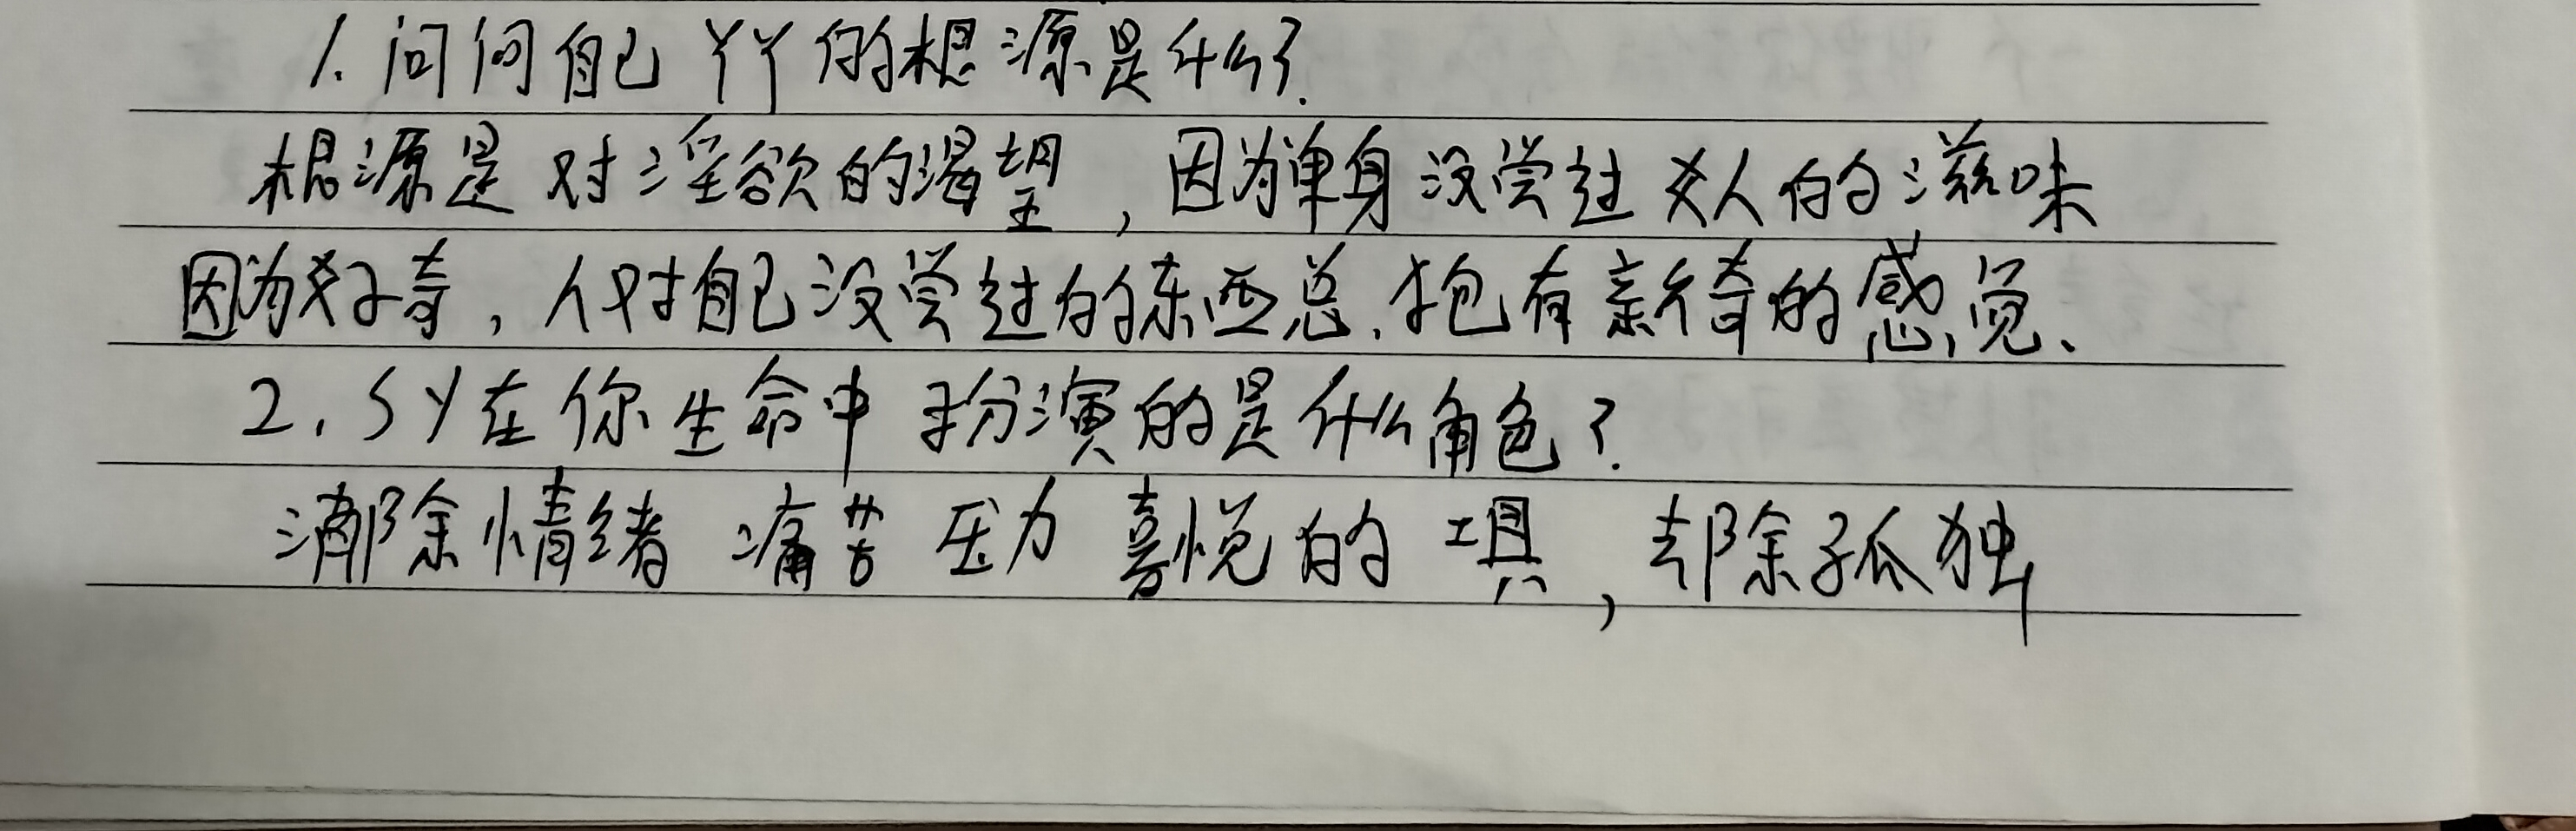 1. 问问自己 YY 的根源是什么？
根源是 对淫欲的渴望，因为单身没尝过女人的滋味
因为好奇，人对自己没尝过的东西总.抱有新奇的感觉、
2. SY在你生命中 扮演的是什么角色？
消除情绪 痛苦 压力 喜悦的 工具，去除孤独